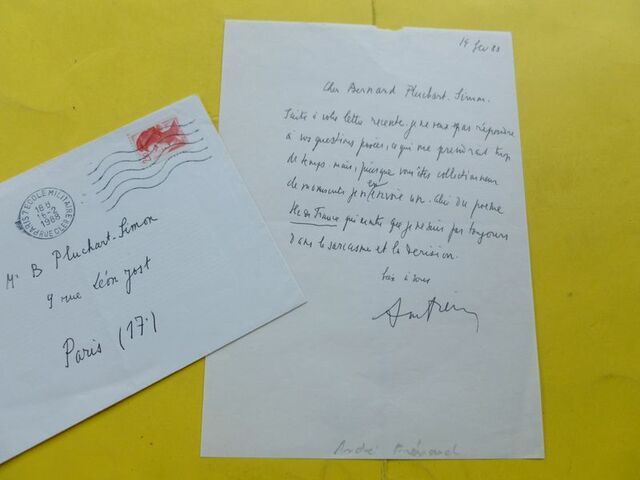 18 H
16-2
1988
PARIS 7 ECOLE MILITAIRE
Mr B Pluchart-Simon
9 rue Léon Jost
Paris (17.)
14 fev 88
Cher Bernard Pluchart-Simon.
Suite à votre lettre récente. je ne veux pas répondre
à vos questions ce qui me prendrait trop
de temps. mais, puisque vous êtes collectionneur
de manuscrits je vous en envoie un. du poème
Ile de France qui montre que je ne suis pas toujours
dans le sarcasme et la dérision.
bien à vous
André Frénaud